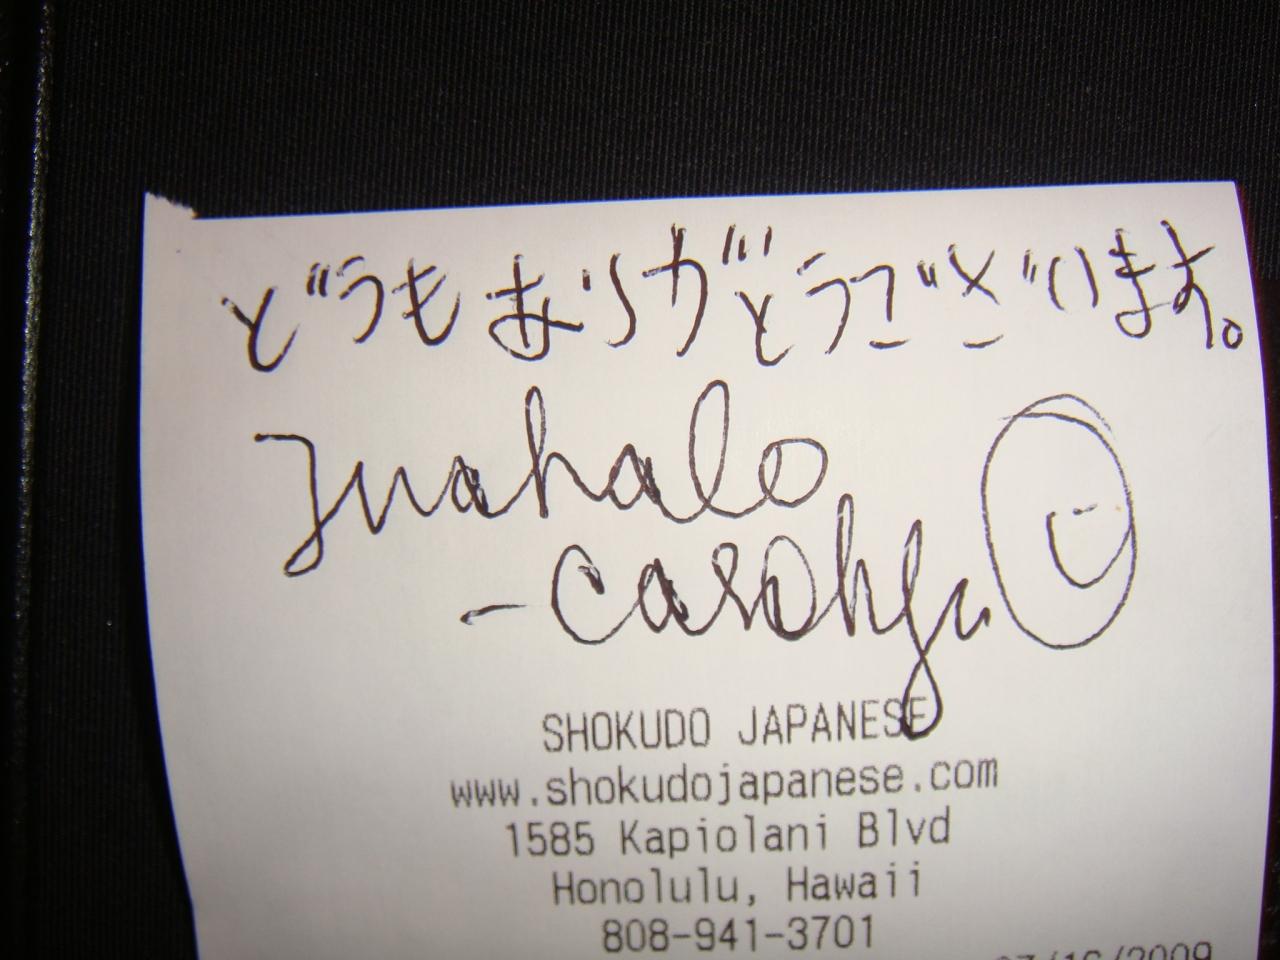 どうもありがとうございます。
mahalo
SHOKUDO JAPANESE
www.shokudojapanese.com
1585 Kapiolani Blvd
Honolulu, Hawaii
808-941-3701
07/16/2009